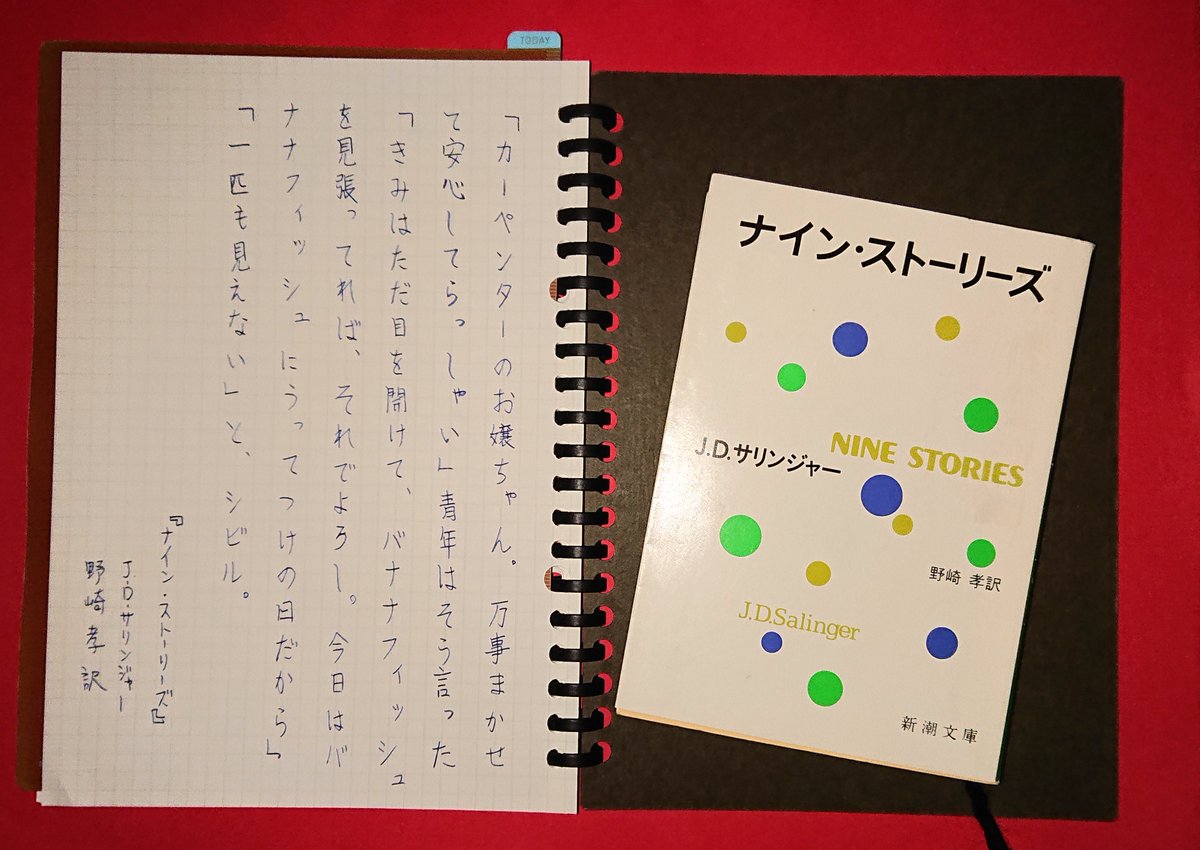 TODAY
「カーペンターのお嬢ちゃん。万事まかせ
て安心してらっしゃい」青年はそう言った
「きみはただ目を開けて、バナナフィッシュ
を見張ってれば、それでよろし。今日はバ
ナナフィッシュにうってつけの日だから」
「一匹も見えない」と、シビル。
『ナイン・ストーリーズ』
J・D・サリンジャー
野崎孝訳
ナイン・ストーリーズ
NINE STORIES
J.D.サリンジャー
野崎 孝訳
J.D.Salinger
新潮文庫